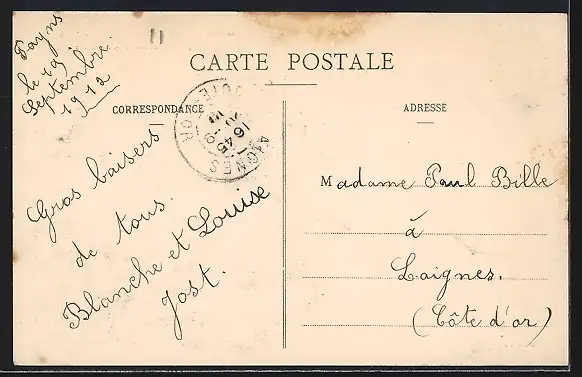 Payns
le 19
Septembre
1912
CARTE POSTALE
CORRESPONDANCE
ADRESSE
Gros baisers
de tous.
Blanche et Louise
Jost.
Madame Paul Bille
à
Laignes.
(Côte d'or)
LAIGNES
16 45
COTE-D'OR